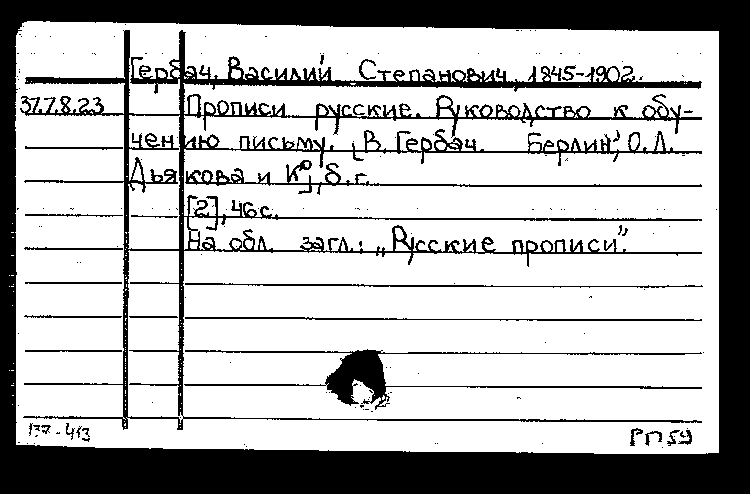 Гербач, Василий Степанович, 1845-1902.
37.7.8.23 Прописи русские. Руководство к обу-
чению письму. [В. Гербач. Берлин, О.Л.
Дьякова и К°], б.г.
[2], 46 с.
На обл. загл.: „Русские прописи”.
137-413 РП 59